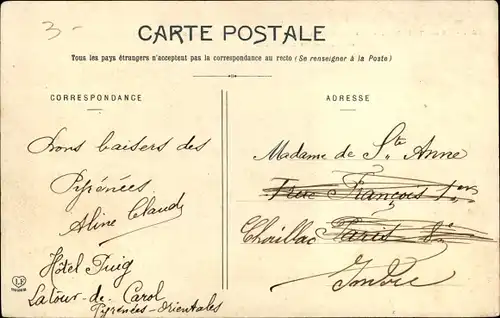 3-
CARTE POSTALE
Tous les pays étrangers n'acceptent pas la correspondance au recto (Se renseigner à la Poste)
CORRESPONDANCE
ADRESSE
Bons baisers des
Pyrénées
Aline Claude
Hôtel Puig
Latour-de-Carol
Pyrénées-Orientales
Madame de Ste Anne
7 rue François 1er
Paris 8e